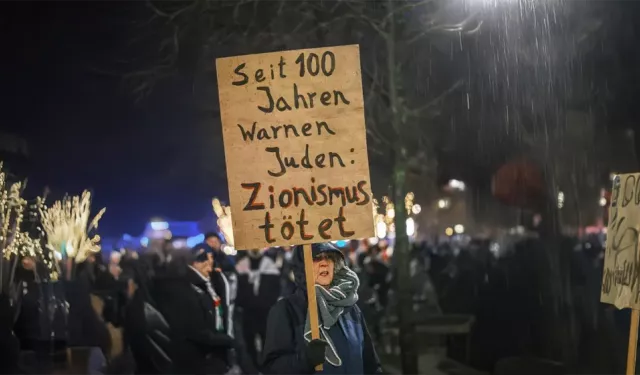 Seit 100
Jahren
warnen
Juden:
Zionismus
tötet